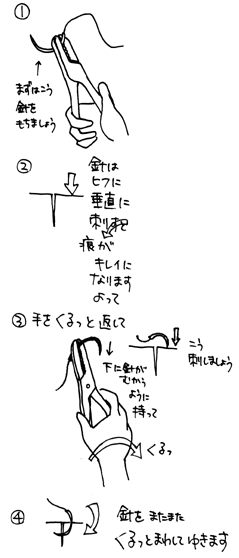 ①
まずはこう
針を
もちましょう
②
針は
ヒフに
垂直に
刺すと
痕が
キレイに
なります
よって
③ 手をくるっと返して
下に針が
むかう
ように
持って
こう
刺しましょう
くるっ
④ 針をまたまた
くるっとまわしてゆきます